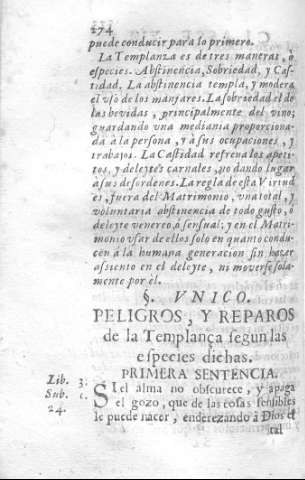 274
puede conducir para lo primero.
La Templanza es de tres maneras, ò
especies. Abstinencia, Sobriedad, y Cas-
tidad. La abstinencia templa, y modera
el vso de los manjares. La sobriedad el de
las bevidas, principalmente del vino;
guardando vna mediania proporciona-
da à la persona, y à sus ocupaciones, y
trabajos. La Castidad refrena los apeti-
tos, y deleytes carnales, no dando lugar
à sus desordenes. La regla de esta Virtud
es, fuera del Matrimonio, vna total, y
voluntaria abstinencia de todo gusto, ò
deleyte venereo, ò sensual; y en el Matri-
monio vsar de ellos solo en quanto condu-
cen à la humana generacion sin hazer
assiento en el deleyte, ni moverse sola-
mente por èl.
§. VNICO.
PELIGROS, Y REPAROS
de la Templança segun las
especies dichas.
PRIMERA SENTENCIA.
Lib. 3.
Sub. c.
24.
SI el alma no obscurece, y apaga
el gozo, que de las cosas sensibles
le puede nacer, enderezando à Dios el
tal